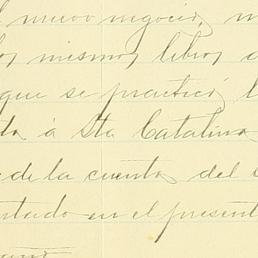 l nuevo negocio, n
los mismos libros d
que se practicó l
da á Sta Catalina
de la cuenta del
ntado en el present